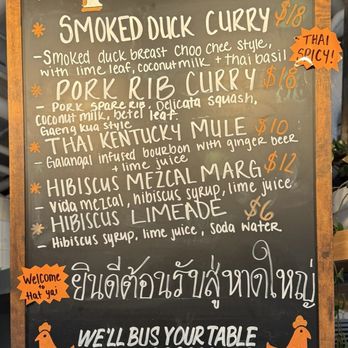 SMOKED DUCK CURRY $18
- Smoked duck breast choo chee style,
with lime leaf, coconut milk + thai basil
THAI
SPICY!
PORK RIB CURRY $18
- PORK SPARE RIB, Delicata squash,
coconut milk, betel leaf.
Gaeng kua style
THAI KENTUCKY MULE $10
- Galangal infused bourbon with ginger beer
+ lime juice
HIBISCUS MEZCAL MARG $12
- Vida mezcal, hibiscus syrup, lime juice
HIBISCUS LIMEADE $6
- Hibiscus syrup, lime juice, Soda water
Welcome
to
Hat yai
ยินดีต้อนรับสู่หาดใหญ่
WE'LL BUS YOUR TABLE